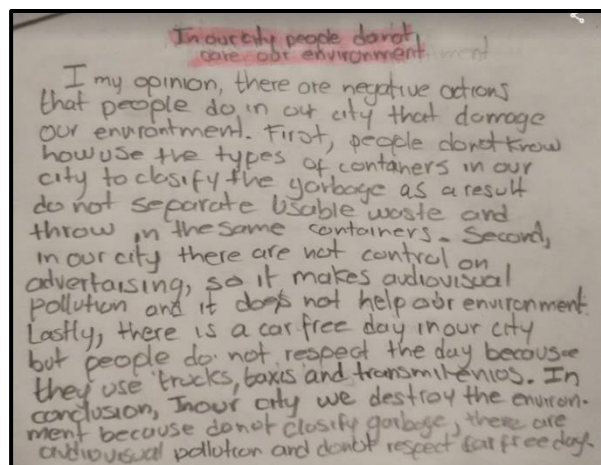 In our city people do not
care obr environment
I my opinion, there are negative actions
that people do in out city that damage
our environtment. First, people donot know
how use the types of contaners in our
city to clasify the garbage as a result
do not separate Usable waste and
throw in the same containers. Second,
in our city there are not control on
advertaising, so it makes audiovisual
pollution and it does not help obr environment.
Lastly, there is a car free day in our city
but people do not respect the day because
they use trucks, taxis and transmilenios. In
conclusion, In our city we destroy the environ-
ment because donot clasify garbage, there are
audiovisual pollution and donot respect car free day.